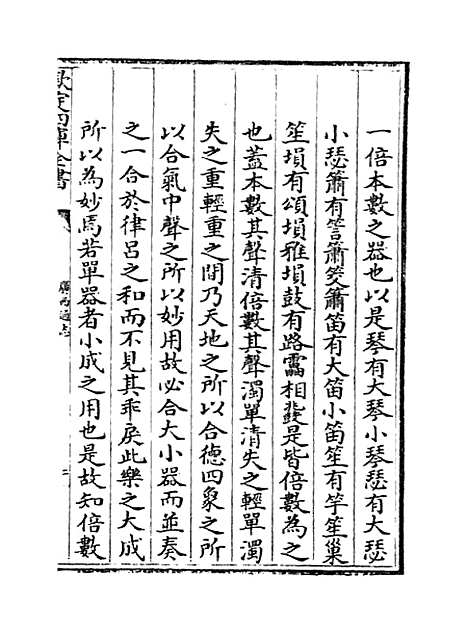 一倍本數之器也以是琴有大琴小琴瑟有大瑟
小瑟簫有䇾簫筊簫笛有大笛小笛笙有竽笙巢
笙塤有頌塤雅塤鼓有路鼗相鼗是皆倍數為之
也蓋本數其聲清倍數其聲濁單清失之輕單濁
失之重輕重之間乃天地之所以合德四象之所
以合氣中聲之所以妙用故必合大小器而並奏
之一合於律呂之和而不見其乖戾此樂之大成
所以為妙焉若單器者小成之用也是故知倍數
欽定四庫全書
廣西通志